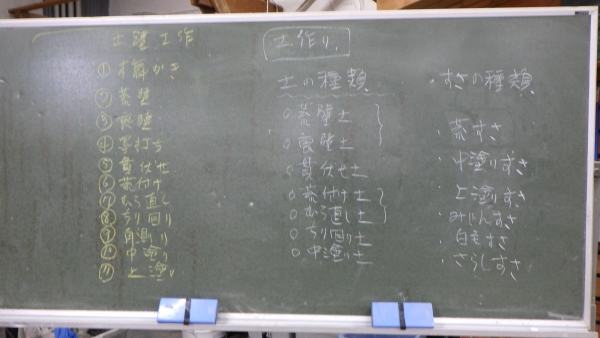 土壁工作
① 木舞かき
② 荒壁
③ 裏壁
④ 墨打ち
⑤ 貫伏せ
⑥ 荒付け
⑦ むら直し
⑧ ちり回り
⑨ 角測り
⑩ 中塗り
⑪ 上塗り
土作り.
土の種類
○ 荒壁土
○ 裏壁土
○ 貫伏せ土
○ 荒付け土
○ むら直し土
○ ちり回り土
○ 中塗り土
すさの種類
・荒すさ
・中塗りすさ
・上塗りすさ
・みじんすさ
・白毛すさ
・さらしすさ